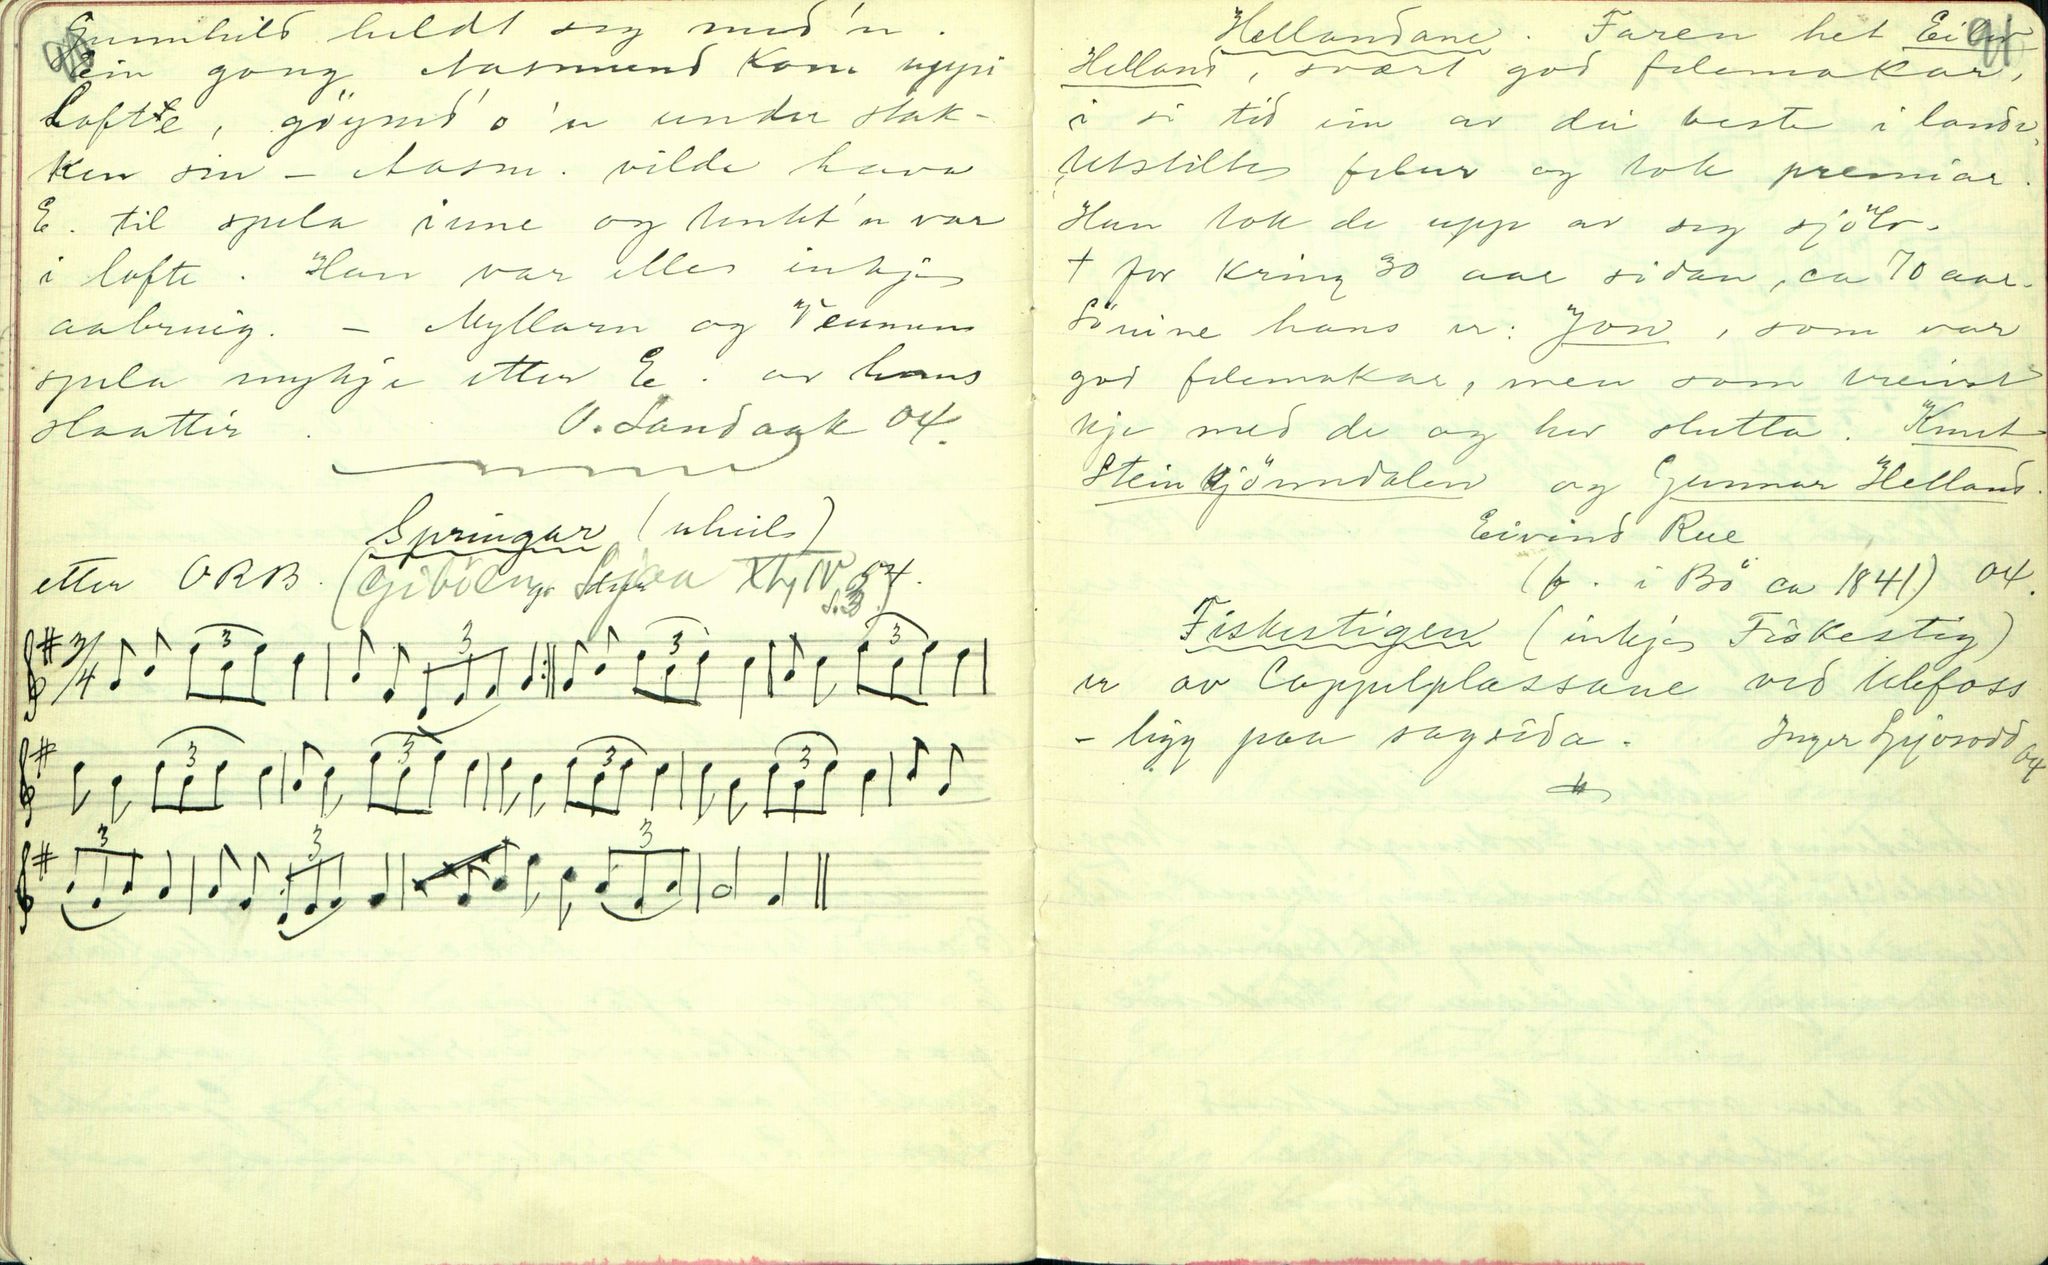 Gunnhild heldt seg med'n.
Ein gong Aasmund kom uppi
Loftte, göymd'o'n under stak-
ken sin - Aasm. vilde hava
E. til spela inne og tenkt'n var
i lofte. Han var elles inkjes
aabruig. - Myllarn og Veumen
spela mykje etter E. av hans
slaattir. O. Sandaak 04.
Springar (uheil)
etter ORB. (Giböen XL, IV 54.
S. 3.)
3/4 3 3 3 3
3 3 3 3
3 3 3
91
Hellandane. Faren het Eilev
Helland, svært god felemakar,
i si tid ein av dei beste i lande,
utstilte felur og tok premiar.
Han tok de upp av seg sjölv.
† for kring 30 aar sidan, ca 70 aar.
Sönine hans er: Jon, som var
god felemakar, men som treivst
kje med de og her slutta. Knut
Steinkjönndalen og Gunnar Helland.
Eivind Rue
(f. i Bö ca 1841) 04.
Fiskestigen (inkjes Fiskestig)
er av Cappelplassane ved Ulefoss
- ligg paa sagsida. Inger Gjösodd
04